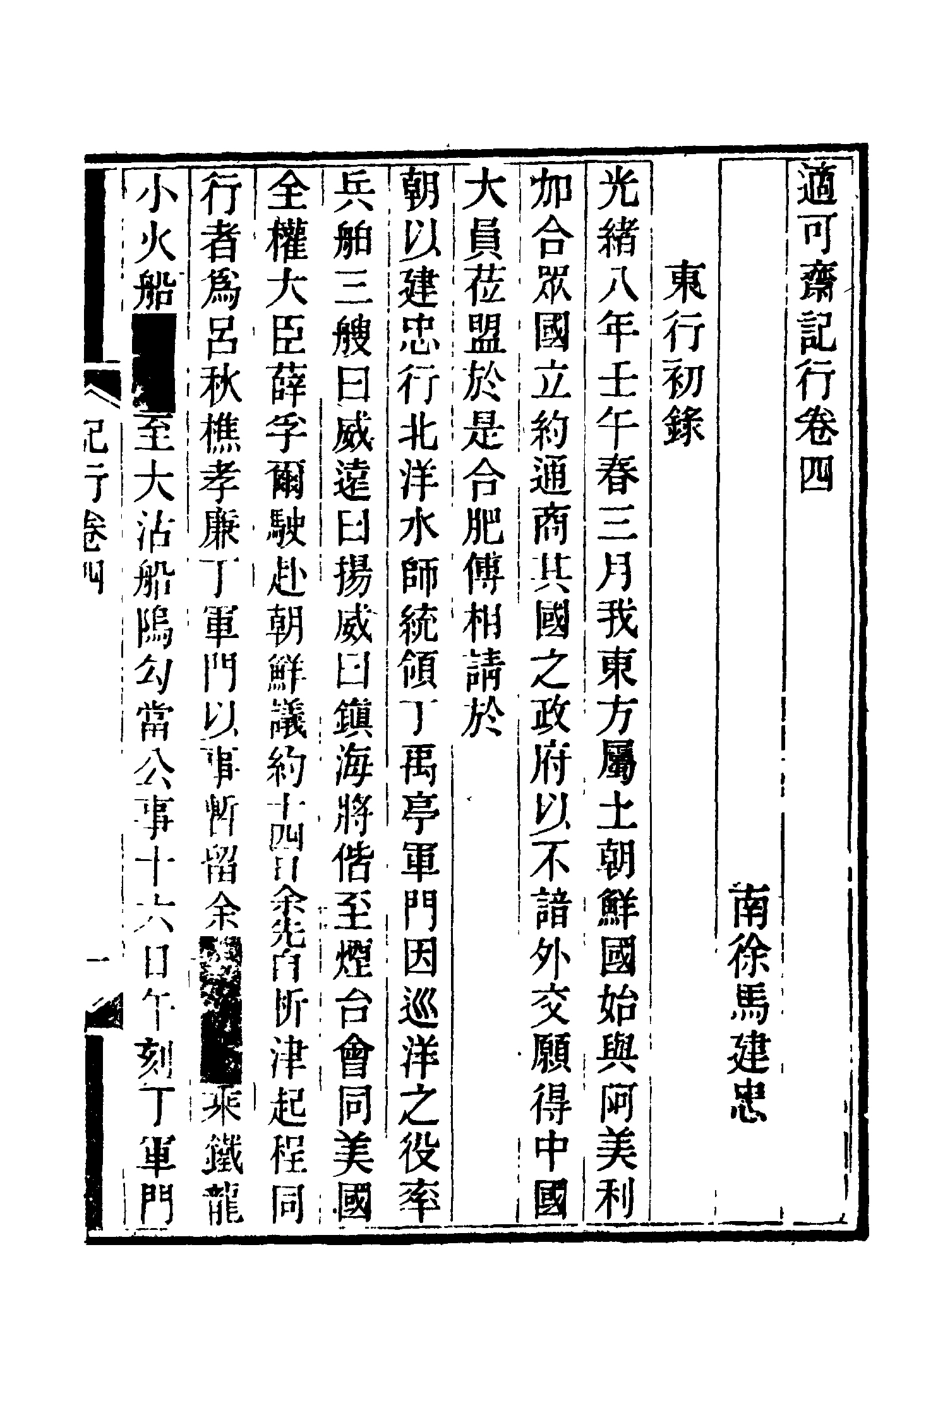 適可齋記行卷四
南徐馬建忠
東行初錄
光緒八年壬午春三月我東方屬土朝鮮國始與阿美利
加合眾國立約通商其國之政府以不諳外交願得中國
大員莅盟於是合肥傅相請於
朝以建忠行北洋水師統領丁禹亭軍門因巡洋之役率
兵船三艘曰威遠曰揚威曰鎮海將偕至煙台會同美國
全權大臣薛孚爾駛赴朝鮮議約十四日余先自析津起程同
行者爲呂秋樵孝廉丁軍門以事暫留余乘鐵龍
小火船至大沽船隖勾當公事十六日午刻丁軍門
記行卷四
一